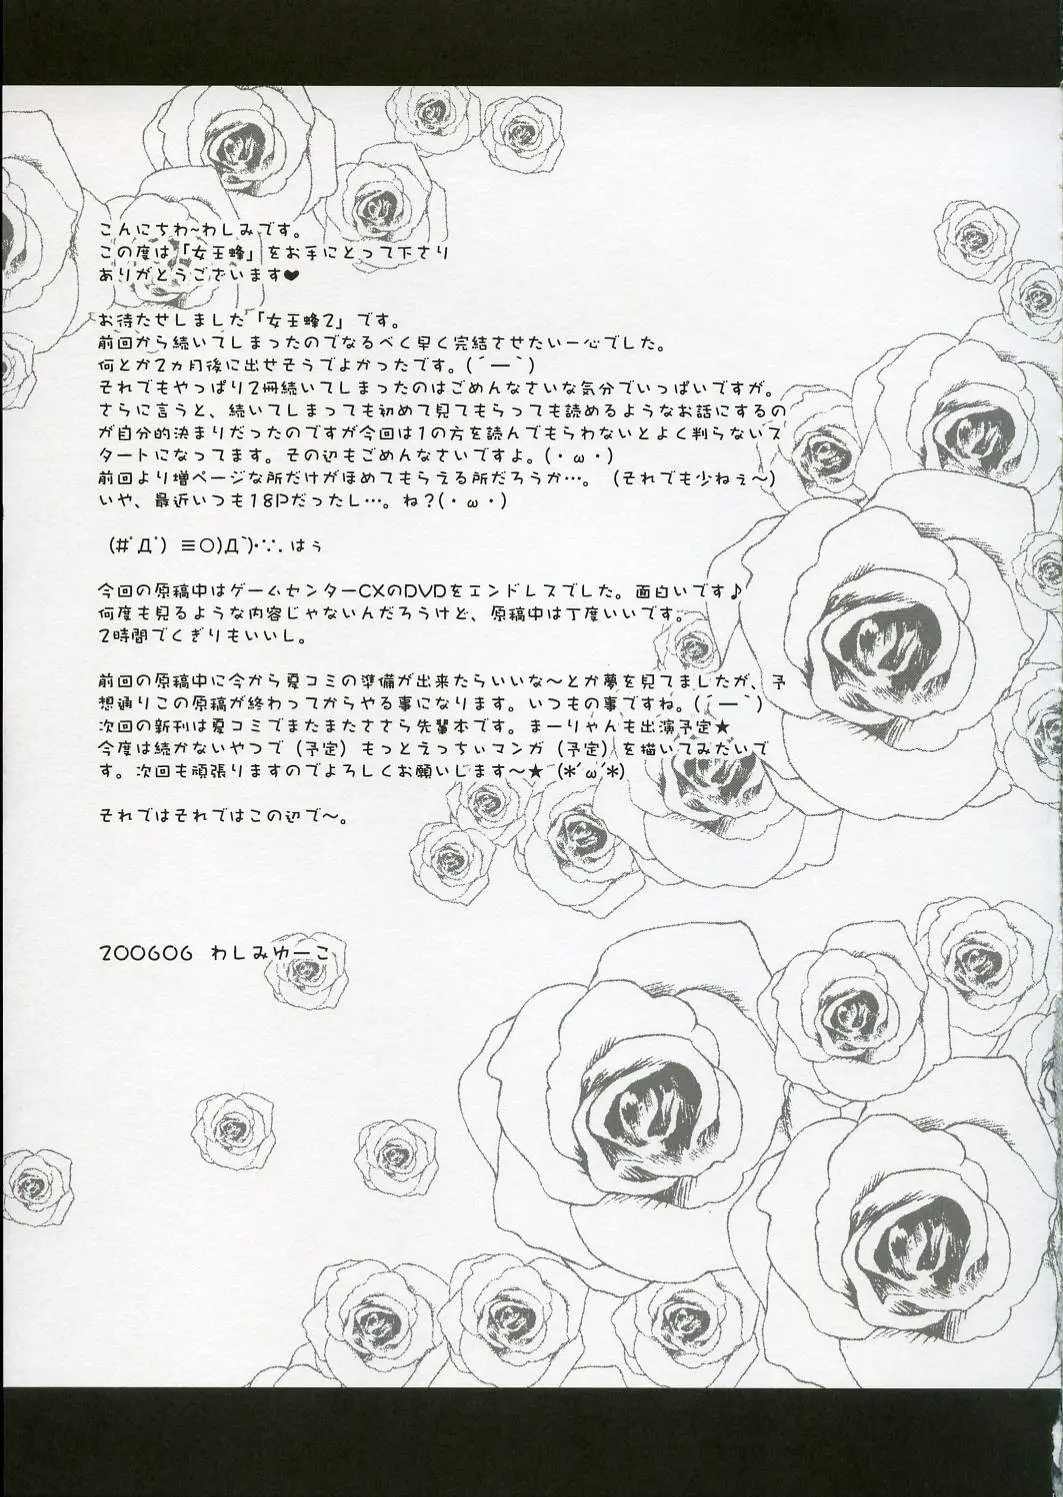 こんにちわ~わしみです。
この度は「女王蜂」をお手にとって下さり
ありがとうございます♥
お待たせしました「女王蜂2」です。
前回から続いてしまったのでなるべく早く完結させたい一心でした。
何とか2ヵ月後に出せそうでよかったです。(´ー｀)
それでもやっぱり2冊続いてしまったのはごめんなさいな気分でいっぱいですが。
さらに言うと、続いてしまっても初めて見てもらっても読めるようなお話にするの
が自分的決まりだったのですが今回は1の方を読んでもらわないとよく判らないス
タートになってます。その辺もごめんなさいですよ。(・ω・)
前回より増ページな所だけがほめてもらえる所だろうか…。（それでも少ねぇ～）
いや、最近いつも18Pだったし…。ね?(・ω・)
(#ﾟДﾟ) ≡○)Д`)･∵.はぅ
今回の原稿中はゲームセンターCXのDVDをエンドレスでした。面白いです♪
何度も見るような内容じゃないんだろうけど、原稿中は丁度いいです。
2時間でくぎりもいいし。
前回の原稿中に今から夏コミの準備が出来たらいいな～とか夢を見てましたが、予
想通りこの原稿が終わってからやる事になります。いつもの事ですね。(´ー｀)
次回の新刊は夏コミでまたまたささら先輩本です。まーりゃんも出演予定★
今度は続かないやつで（予定）もっとえっちぃマンガ（予定）を描いてみたいで
す。次回も頑張りますのでよろしくお願いします～★ (*´ω`*)
それではそれではこの辺で～。
200606 わしみゆーこ